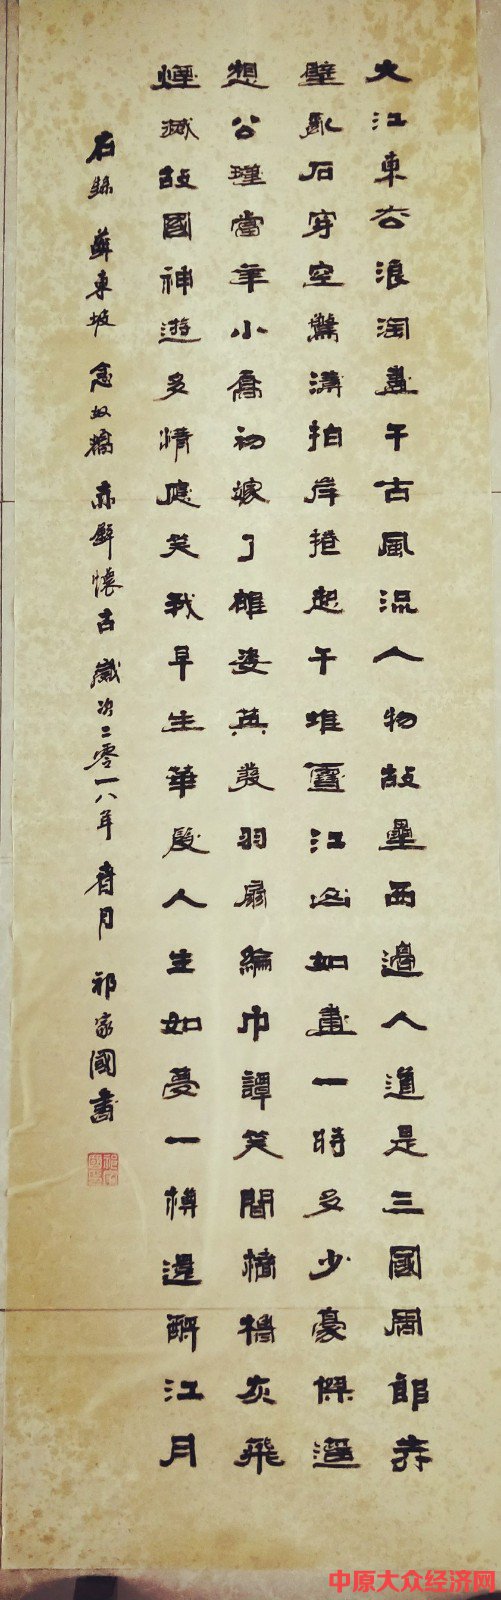 大江東去浪淘盡千古風流人物故壘西邊人道是三國周郎赤
壁亂石穿空驚濤拍岸捲起千堆雪江山如畫一時多少豪傑遙
想公瑾當年小喬初嫁了雄姿英發羽扇綸巾譚笑間檣櫓灰飛
煙滅故國神遊多情應笑我早生華髮人生如夢一樽還酹江月
右錄 蘇東坡 念奴嬌 赤壁懷古 歲次二零一八年 月 祁家國書
中原大众经济网